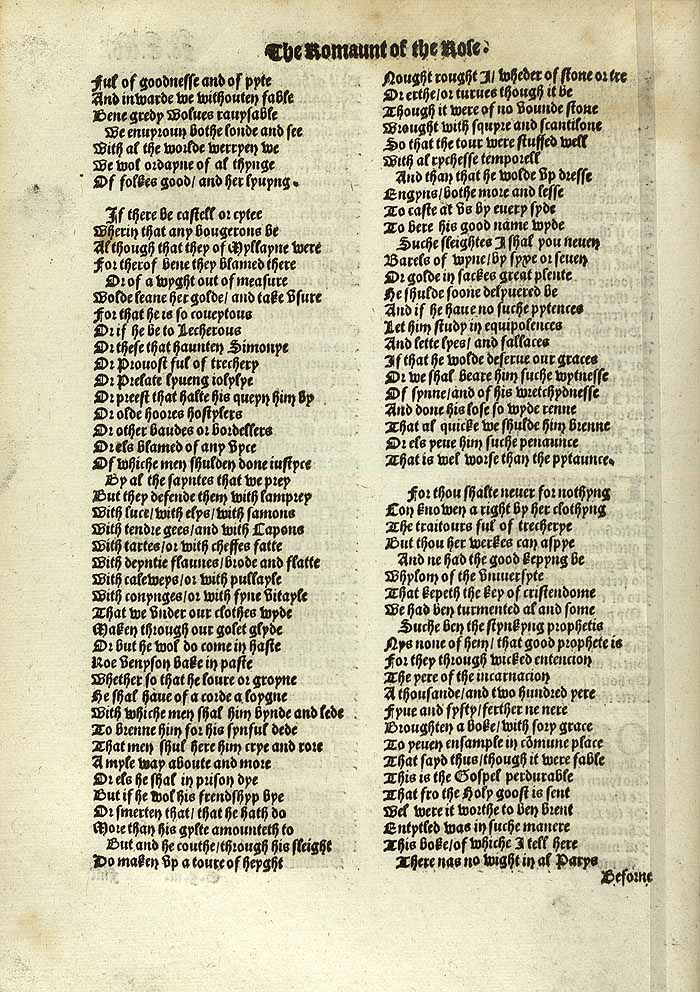 The Romaunt of the Rose.
Ful of goodnesse and of pyte
And inwarde we withouten fable
Bene gredy Wolues rauysable
We enuyroun bothe londe and see
With al the worlde werryen we
We wol ordayne of al thynge
Of folkes good/ and her lyuyng.
If there be castell or cytee
Wherin that any bougerons be
Al though that they of Myllayne were
For therof bene they blamed there
Or of a wyght out of measure
Wolde leane her golde/ and take vsure
For that he is so coueytous
Or if he be to Lecherous
Or these that haunten Simonye
Or Prouost ful of trechery
Or Prelate lyueng iolylye
Or preest that halte his queyn him by
Or olde hoores hostylers
Or other baudes or bordellers
Or els blamed of any vyce
Of whiche men shulden done iustyce
By al the sayntes that we prey
But they defende them with lamprey
With luce/ with elys/ with samons
With tendre gees/ and with Capons
With tartes/ or with cheffes fatte
With deyntie flaunes/ brode and flatte
With caleweys/ or with pullayle
With conynges/ or with fyne vitayle
That we vnder our clothes wyde
Maken through our golet glyde
Or but he wol do come in haste
Roe venyson bake in paste
Whether so that he loure or groyne
He shal haue of a corde a loygne
With whiche men shal him bynde and lede
To brenne him for his synful dede
That men shul here him crye and rore
A myle way aboute and more
Or els he shal in prison dye
But if he wol his frendshyp bye
Or smerten that/ that he hath do
More than his gylte amounteth to
But and he couthe/ through his sleight
Do maken vp a toure of heyght
Nought rought I/ wheder of stone or tre
Or erthe/ or turues though it be
Though it were of no vounde stone
Wrought with squyre and scantilone
So that the tour were stuffed well
With al rychesse temporell
And than that he wolde vp dresse
Engyns/ bothe more and lesse
To caste at vs by euery syde
To bere his good name wyde
Suche sleightes I shal you neuen
Barels of wyne/ by syxe or seuen
Or golde in sackes great plente
He shulde soone delyuered be
And if he haue no suche pytences
Let him study in equipolences
And lette lyes/ and fallaces
If that he wolde deserue our graces
Or we shal beare him suche wytnesse
Of synne/ and of his wretchydnesse
And done his lose so wyde renne
That al quicke we shulde him brenne
Or els yeue him suche penaunce
That is wel worse than the pytaunce.
For thou shalte neuer for nothyng
Con knowen a right by her clothyng
The traitours ful of trecherye
But thou her werkes can aspye
And ne had the good kepyng be
Whylom of the vniuersyte
That kepeth the key of cristendome
We had ben turmented al and some
Suche ben the stynkyng prophetis
Nys none of hem/ that good prophete is
For they through wicked entencion
The yere of the incarnacion
A thousande/ and two hundred yere
Fyue and fyfty/ ferther ne nere
Broughten a boke/ with sory grace
To yeuen ensample in cōmune place
That sayd thus/ though it were fable
This is the Gospel perdurable
That fro the Holy goost is sent
Wel were it worthe to ben brent
Entytled was in suche manere
This boke/ of whiche I tell here
There nas no wight in al Parys
Beforne